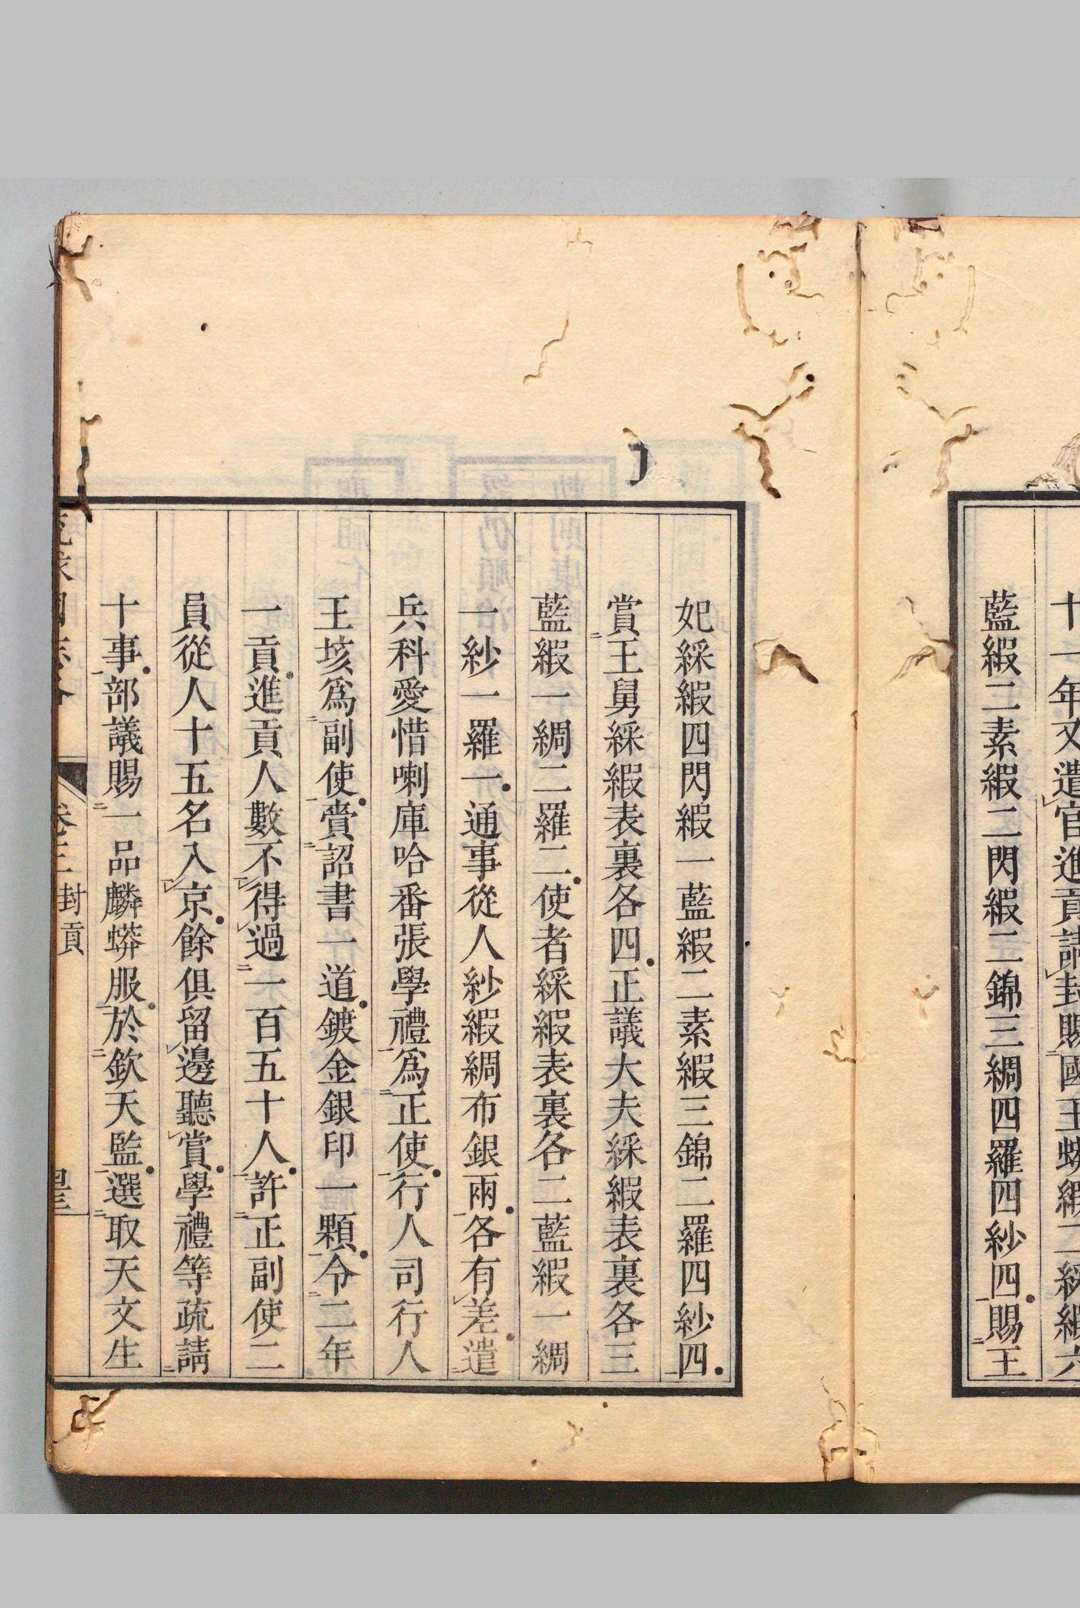 十一年又遣官進貢請封賜國王蟒緞二綵緞六
藍緞二素緞二閃緞二錦三綢四羅四紗四賜王
妃綵緞四閃緞一藍緞二素緞三錦二羅四紗四
賞王舅綵緞表裏各四正議大夫綵緞表裏各三
藍緞一綢二羅二使者綵緞表裏各二藍緞一綢
一紗一羅一通事從人紗緞綢布銀兩各有差遣
兵科愛惜喇庫哈番張學禮爲正使行人司行人
王垓爲副使賫詔書一道鍍金銀印一顆令二年
一貢進貢人數不得過一百五十人許正副使二
員從人十五名入京餘俱留邊聽賞學禮等疏請
十事部議賜一品麟蟒服於欽天監選取天文生
卷三 封貢